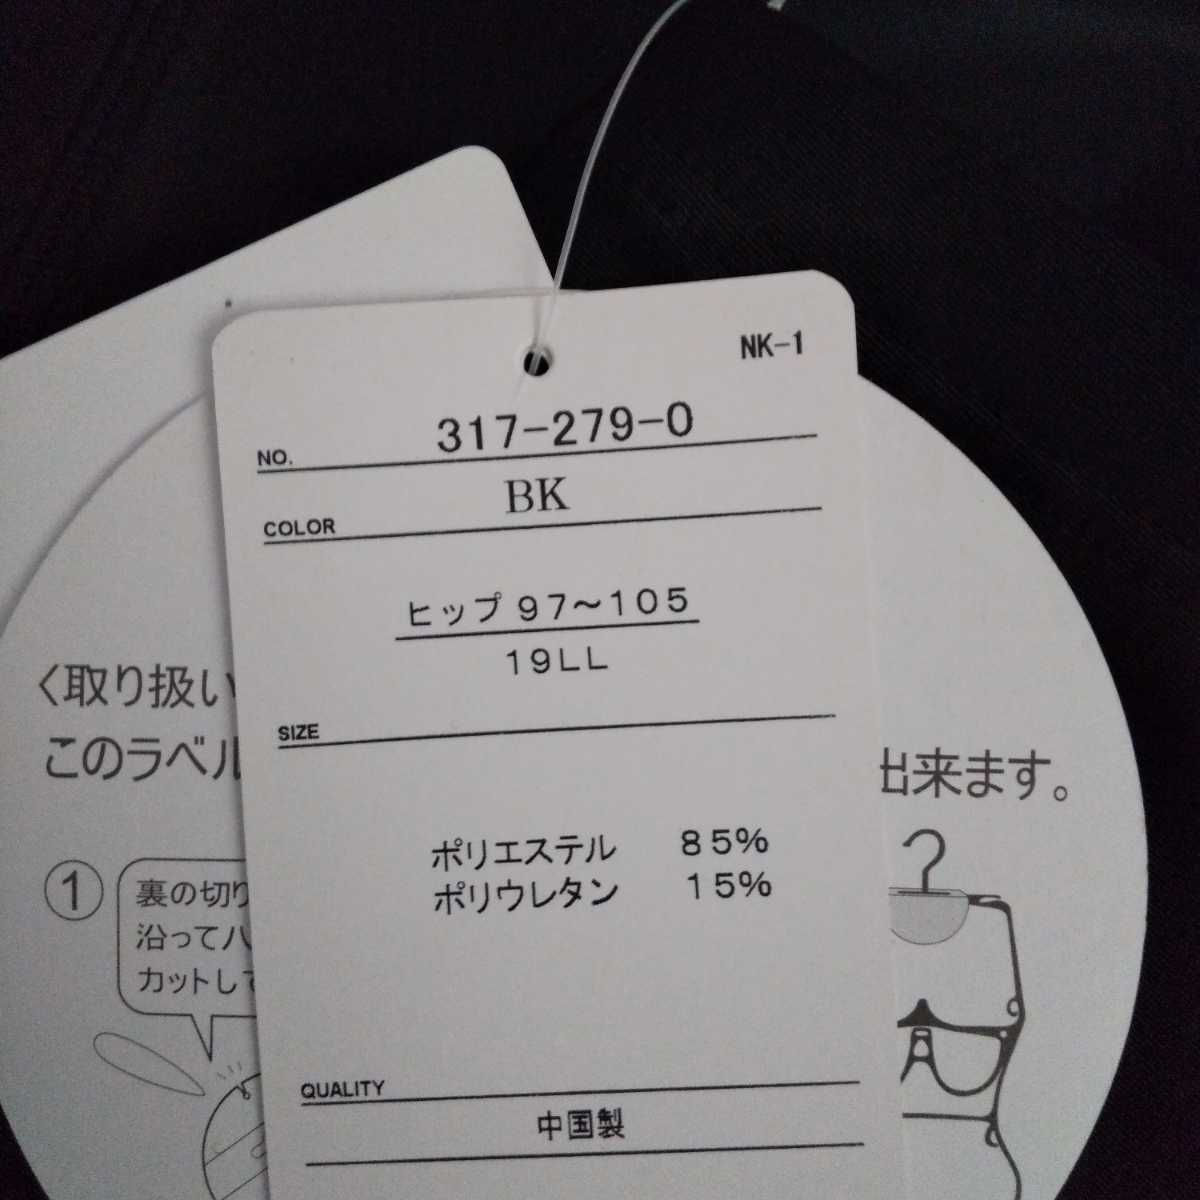 NK-1
NO. 317-279-0
COLOR BK
ヒップ 97〜105
19LL
SIZE
ポリエステル 85%
ポリウレタン 15%
QUALITY
中国製
〈取り扱い
このラベル
出来ます。
①
裏の切り
沿ってハ
カットして